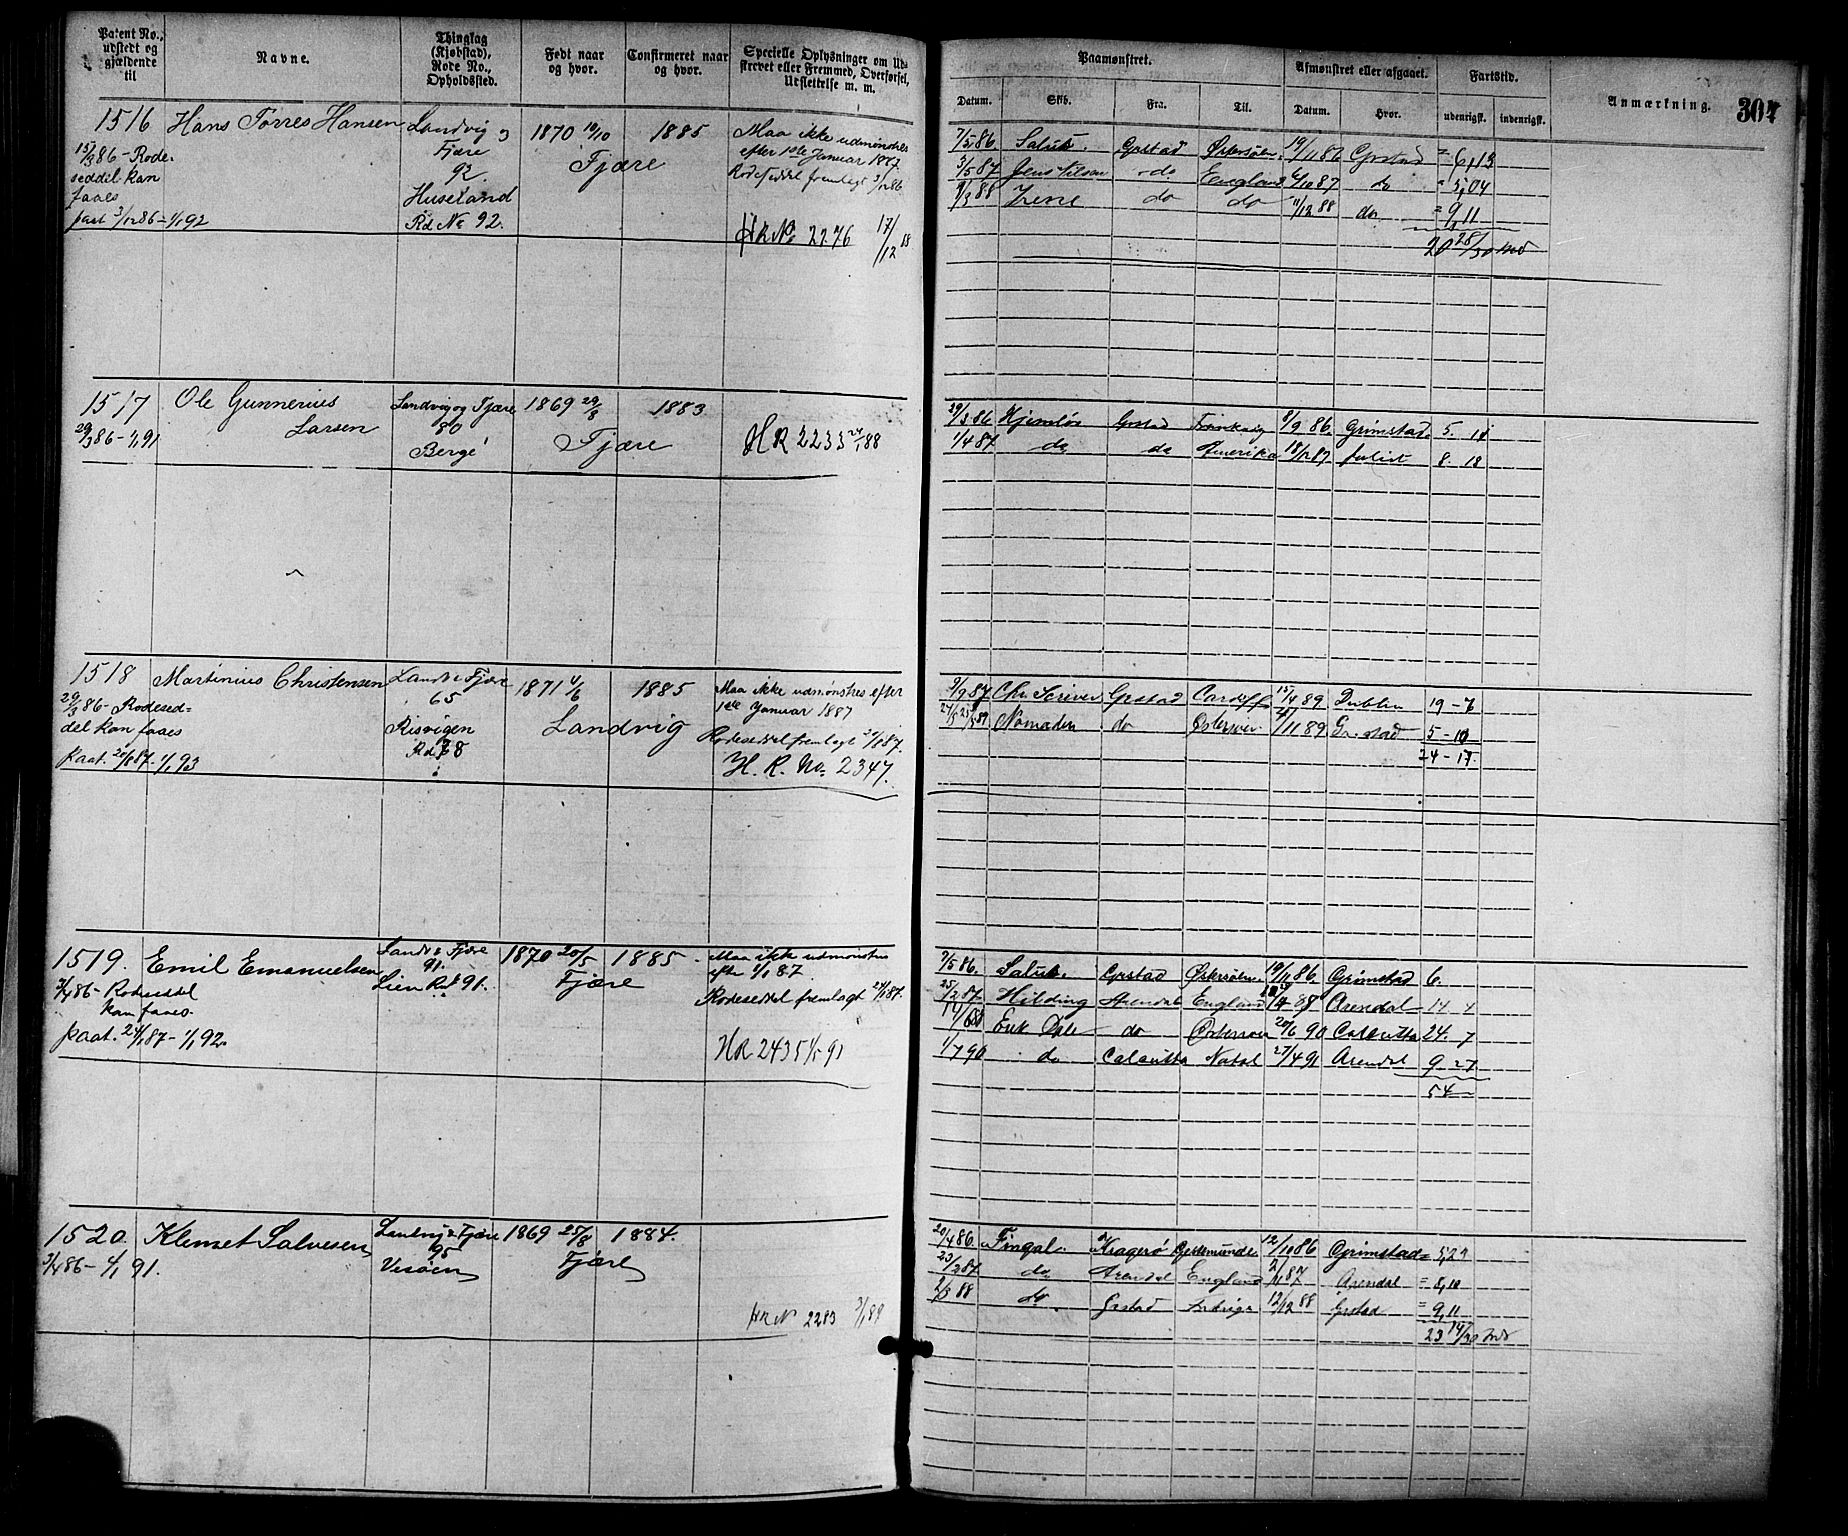 Patent No., udstedt og gjældende til
Navne.
Thinglag (Kjøbstad), Rode No., Opholdssted.
Født naar og hvor.
Confirmeret naar og hvor.
Specielle Oplysninger om Udskrevet eller Fremmed, Overførsel, Udslettelse m. m.
Paamønstret.
Datum. Skib. Fra. Til.
Afmønstret eller afgaaet.
Datum. Hvor.
Fartstid.
udenrigsk. indenrigsk.
Anmærkning.
307
1516 Hans Torres Hansen
15/3 86 - Rode-
seddel kan
faaes
paat 3/12 86 - 1/1 92
Landvig &
Fjære
92.
Huseland
Rd No 92.
1870 19/10 1885
Fjære
Maa ikke udmønstres
efter 1ste Januar 1887.
Rodeseddel fremlagt 3/12 86
HR No 2276 17/12 88
7/5 86. Salus. Grstad Østersøen 19/11 86 Grstad = 6,13
3/5 87 Jens Nilson do England 6/10 87 do = 5,04
1/3 88 Irene do do 11/12 88 do = 9,11
20 28/30 Md
1517 Ole Gunnerius
Larsen
29/3 86 - 1/1 91
Landvig og Fjære
80
Berge
1869 29/8 1883
Fjære
HR 2233 24/1 88
29/3 86 Hjemløs Grstad 8/9 86. Grimstad 5.
1/4 87 do do Amerika 18/12 87 forlist 8. 18
1518 Martinius Christensen
29/3 86 - Rodesed-
del kan faaes
paat. 20/8 87 - 1/1 93
Landv & Fjære
65
Risvigen
Rd 68
1871 4/6 1885
Landvig
Maa ikke udmønstres efter
1ste Januar 1887
Rodeseddel fremlagt 20/8 87.
H. R. No. 2347.
3/9 87 Chr. Scriver Grstad Cardiff 15/4 89 Dublin 19 - 6
Nomaden do 11 89 Gr.stad 5 - 10
24 - 17
1519. Emil Emanuelsen
3/4 86 - Rodeseddel
kan faaes
paat. 24/1 87 - 1/1 92.
Landv & Fjære
91.
Lien Rd. 91.
1870 20/5 1885.
Fjære
Maa ikke udmønstres
efter 1/1 87.
Rodeseddel fremlagt 24/1 87.
HR 2435 1/5 91
7/5 86. Salus. Grstad Østersøen 19/11 86. Grimstad 6.
25/2 87 Hilding Arendal England Arendal 14 4
Erik Dale do Østersøen 20/6 90 Calcutta 24. 7
1/7 90 do Calcutta Natal 27/4 91 Arendal 9 27
54
1520. Klemet Salvesen
3/4 86 - 1/1 91.
Landvig & Fjære
95
Vesøen
1869 25/8 1884.
Fjære
HR N 2283 3/1 89
20/4 86. Fingal. Kragerø Geestemünde 12/10 86 Grimstad = 5,21
23/2 87 do Arendal England 2/11 87 Arendal = 8,10
2/3 88 do Grstad 12/12 88 Grstad = 9,11
23 14/30 Md